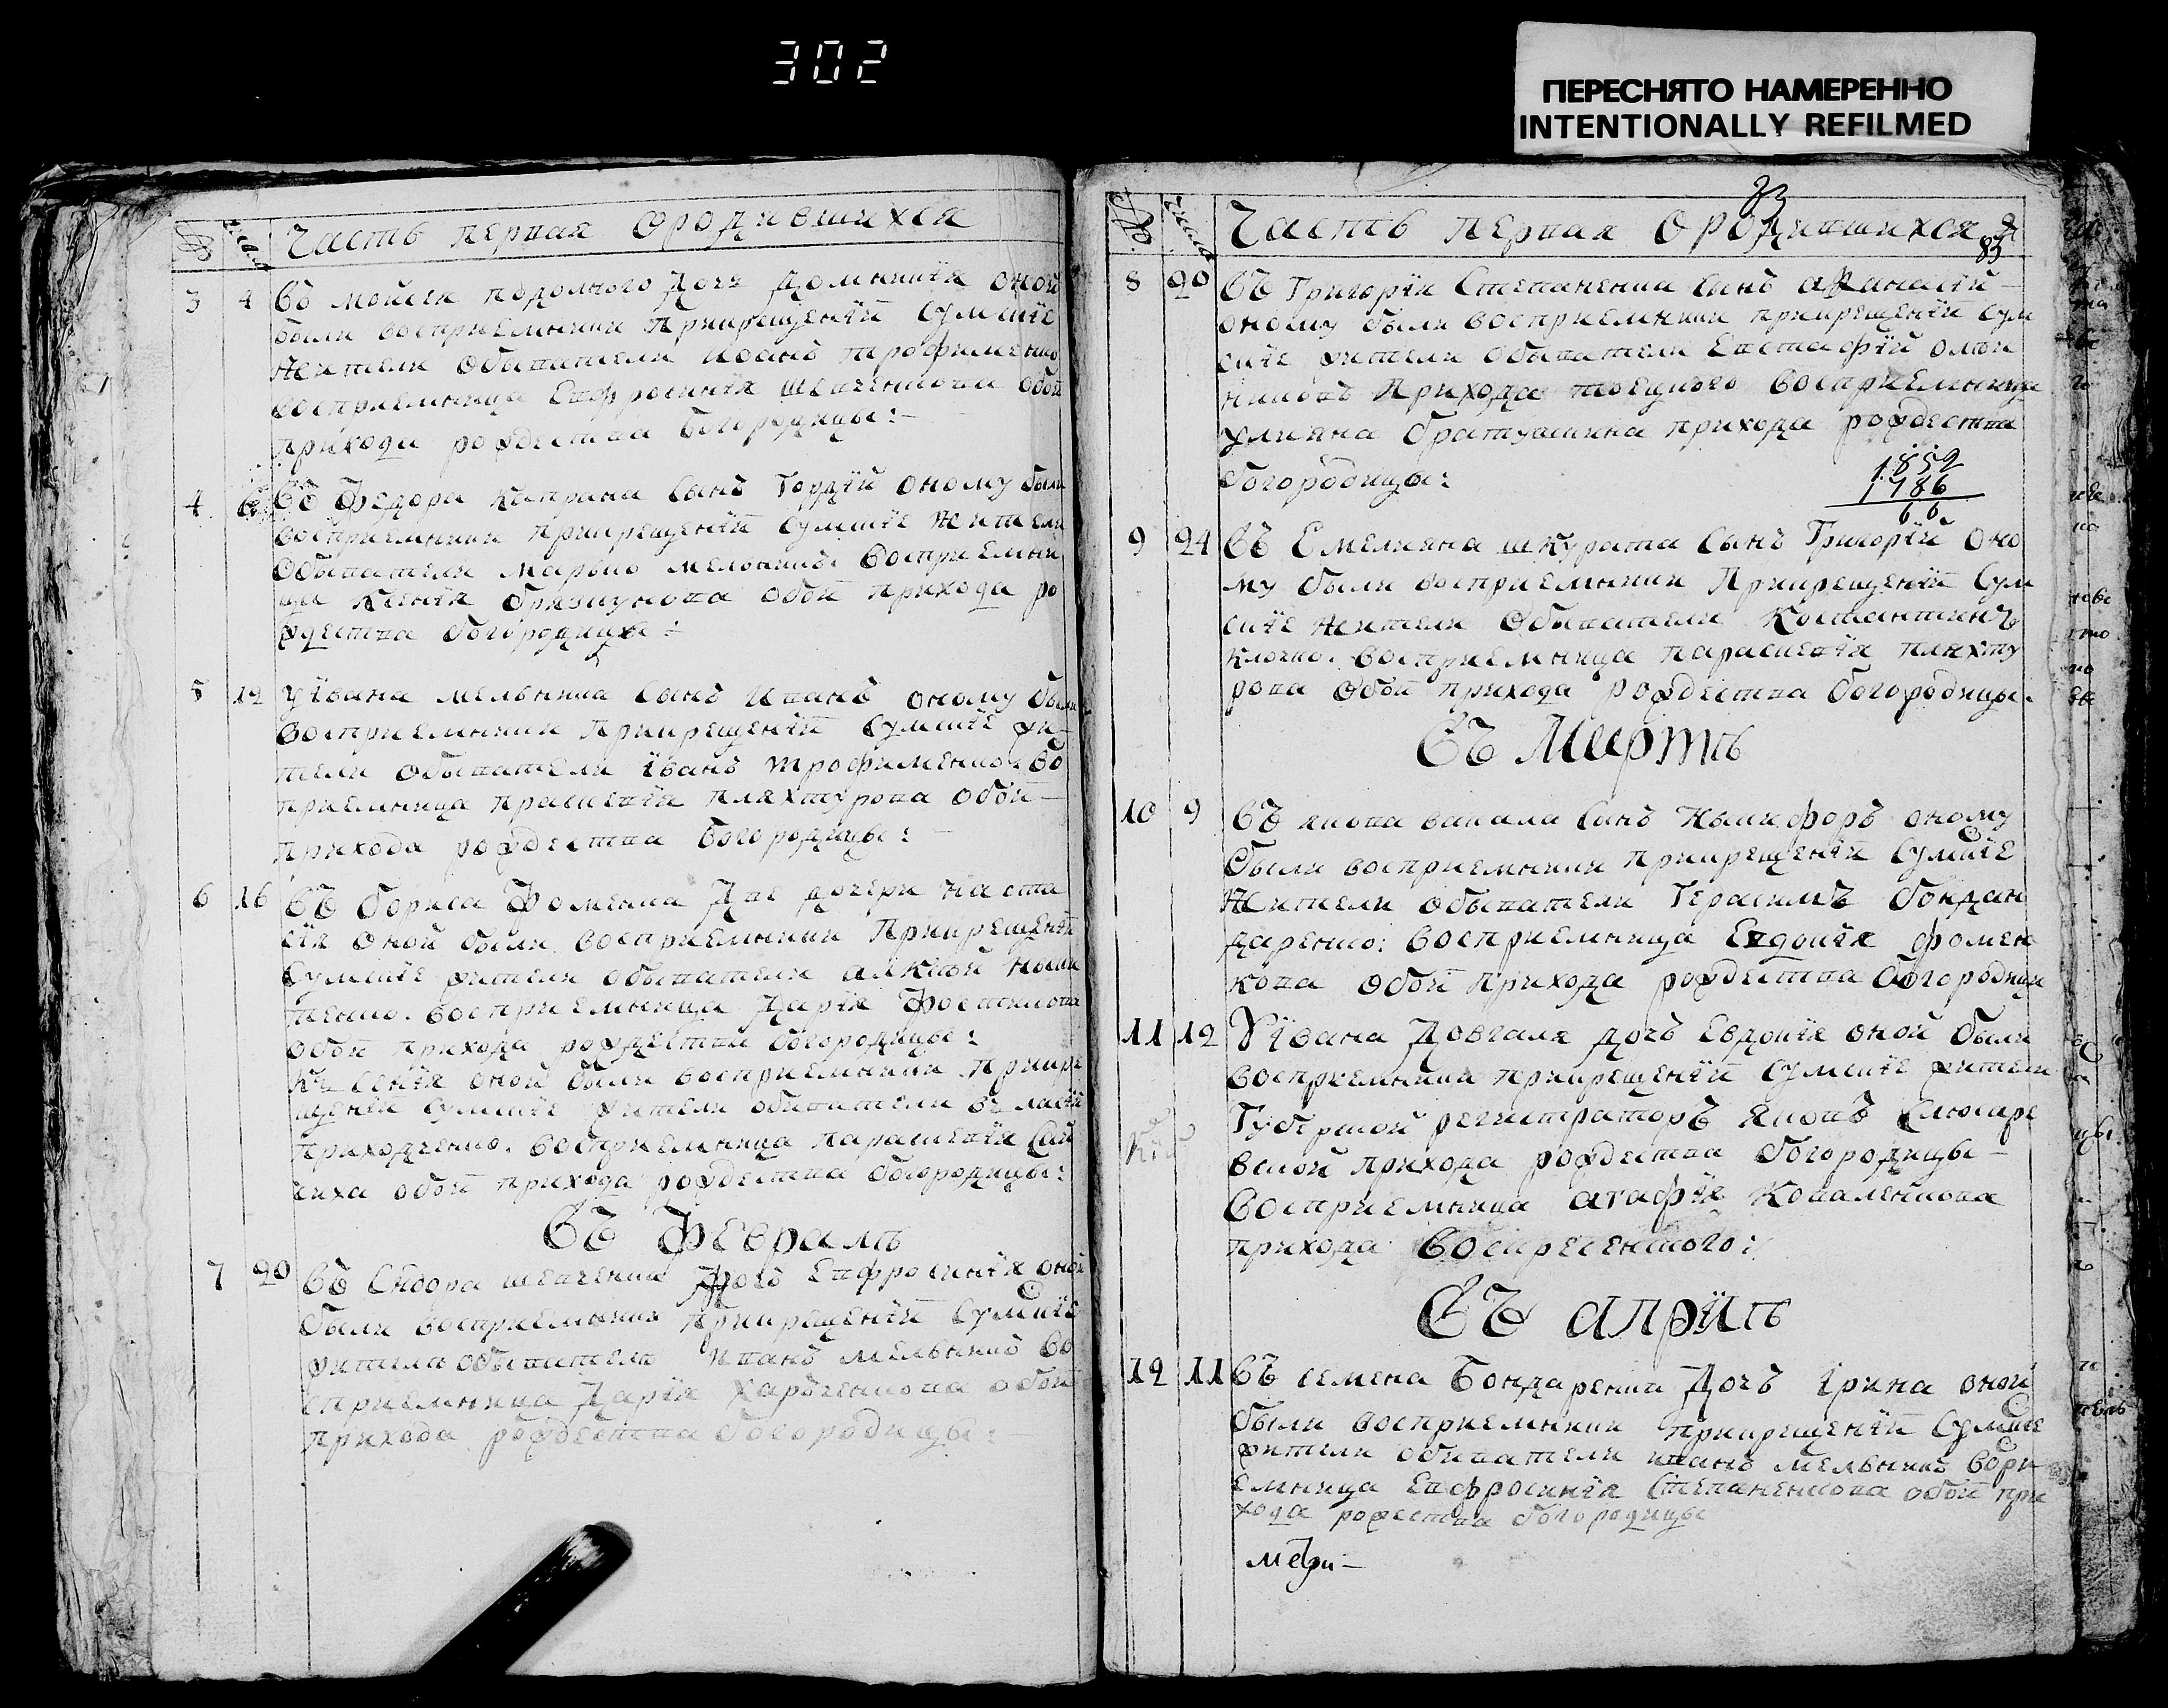 302
ПЕРЕСНЯТО НАМЕРЕННО
INTENTIONALLY REFILMED
№ числа Часть первая Ородившихся
3 4 Въ мойсея подолного дочъ Домникїя оной
были восприемники прикрещенїи Сумские
жители Обыватели Иванъ трофименко
восприемница Евфросинїя шевченкова обои
прихода рождества богородицы:-
4 6 Въ Федора каправа сынъ Гордїй оному были
восприемники прикрещенїи Сумскїе жители
Обыватели Марько мельникъ восприемни
ца ксенїя обои прихода ро
ждества богородицы:-
5 12 У Ївана мельника сынъ Иванъ оному были
восприемники прикрещенїи Сумскїе жи
тели обыватели Їванъ трофименко. во
приемница праскевїя пляхтурова обои
прихода рождества богородицы:
6 16 Въ бориса Фоменка Две дочери наста
сїя оной были восприемники прикрещенїи
Сумскїе жители обыватели алкѣй
восприемница Дарїя
обои прихода рождества богородицы:
Ксенїя оной были восприемники прикре
щенїи Сумскїе жители обиватели
приходченко. восприемница параскевїя
обои прихода рождества богородицы:
Въ Февралѣ
7 20 Въ Сидора шевченка Дочъ Евфросинїя оной
были восприемники прикрещенїи Сумскїе
жители обыватель Иванъ мельникъ во
сприемница Дарїя Харьченкова обои
прихода рождества богородицы:
83
№ числа Часть первая Ородившихся
83
8 20 Въ Григорїя Степаненка сынъ афанасїй
оному были восприемники прикрещенїи Сум
скїе жители обыватели Евстафїй
прихода троецкого восприемница
улияна братушкина прихода рождества
богородицы:
1852
1786
66
9 24 Въ Емелияна шкурата сынъ Григорїй оно
му были восприемники прикрещенїи Сум
скїе жители Обыватели Костантинъ
клочко. восприемница параскевїя пляхту
рова обои прихода рождества богородицы.
Въ Мартѣ
10 9 Въ якова сынъ Никифоръ оному
были восприемники прикрещенїи Сумскїе
жители обыватели Герасимъ бондан
даренко: восприемница Евдокїя фомен
кова обои прихода рождества богородици
11 12 У Ївана Довгаля дочъ Евдокїя оной были
восприемники прикрещенїи Сумскїе жители
Губернской регистраторъ Яковъ
прихода рождества богородицы
восприемница агафїя Коваленкова
прихода воскресенского:
Въ апрїлѣ
12 11 Въ семена Бондаренка дочъ Їрина оной
были восприемники прикрещенїи Сумские
жители обиватели иванъ мельникъ вопри
емница Евфросинїя Степаненкова обои при
хода рожества богородицы
метри-